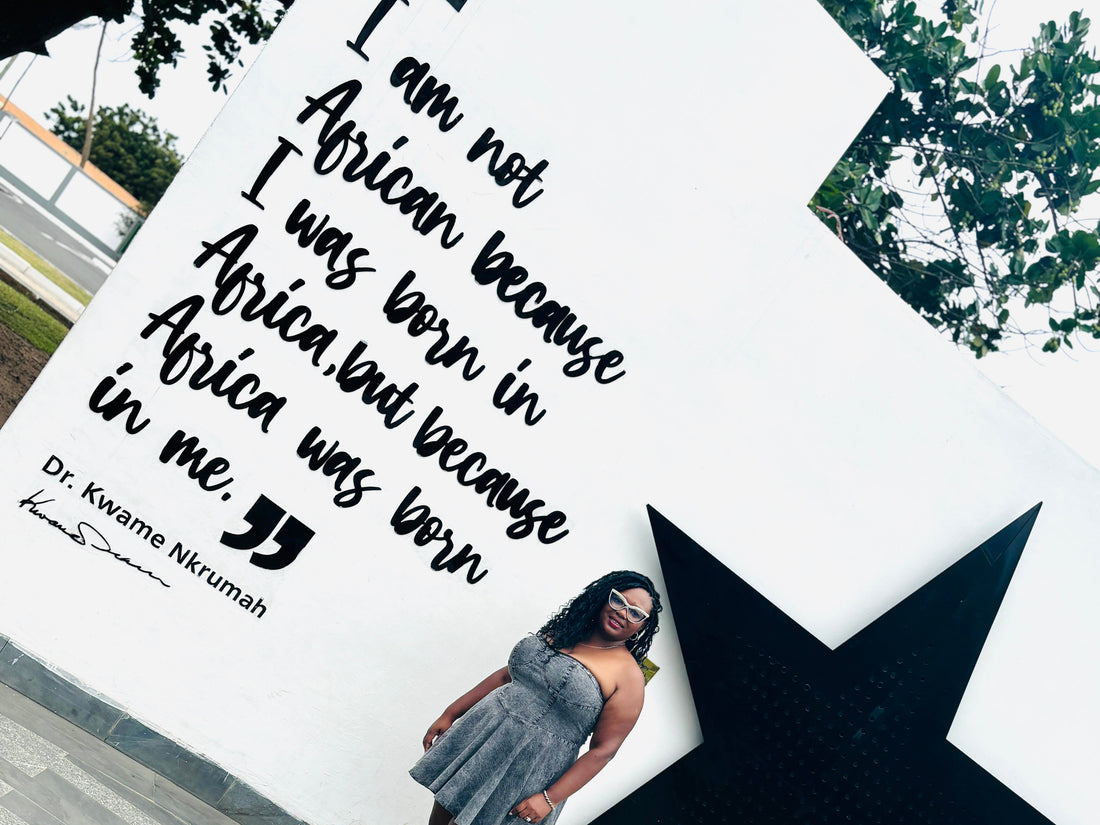 I am not
African because
I was born in
Africa, but because
Africa was born
in me.”
Dr. Kwame Nkrumah